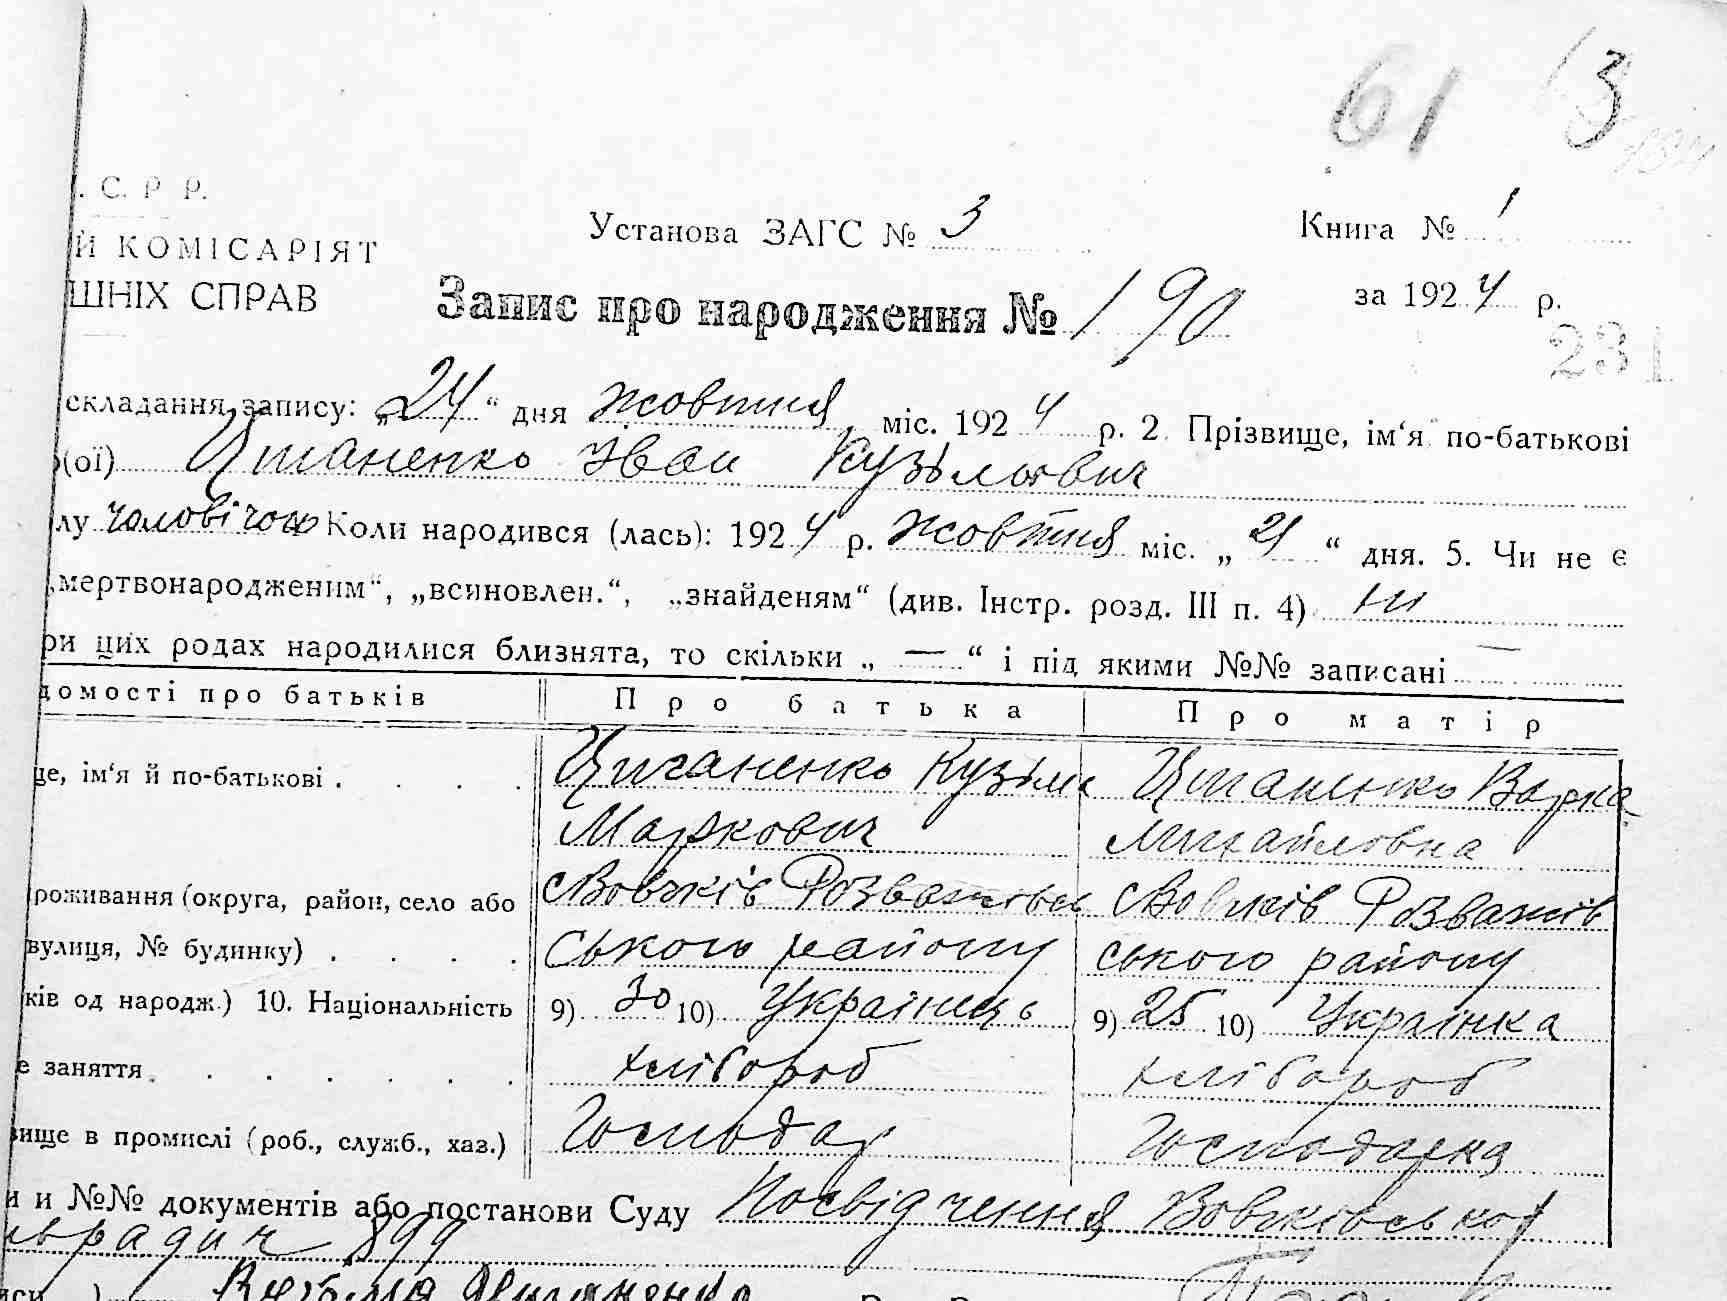 61 3
. С. Р Р.
Установа ЗАГС № 3 Книга № 1
Й КОМІСАРІЯТ
ШНІХ СПРАВ Запис про народження № 190 за 1924 р.
231
складання запису: „24“ дня жовтня міс. 1924 р. 2. Прізвище, ім‘я по-батькові
(ої) Циганенко Іван Кузьмович
лу чоловічої Коли народився (лась): 1924 р. жовтня міс. „21“ дня. 5. Чи не є
„мертвонародженим“, „всиновлен.“, „знайденям“ (див. Інстр. розд. III п. 4) ні
ри цих родах народилися близнята, то скільки „ — “ і під якими №№ записані —
домості про батьків Про батька Про матір
це, ім‘я й по-батькові . . . . Циганенко Кузьма Циганенко Варка
Маркович Михайловна
роживання (округа, район, село або с Вовчків Розважівсь с Вовчків Розважів
вулиця, № будинку) . . . . ського району ського району
ків од народж.) 10. Національність 9) 30 10) Українець 9) 25 10) Українка
е заняття . . . . . . . хлібороб хлібороб
вище в промислі (роб., служб., хаз.) Господар Господарка
и и №№ документів або постанови Суду Посвідчення Вовчківської
сільради ч 899
иси ) Кузьма Циганенко